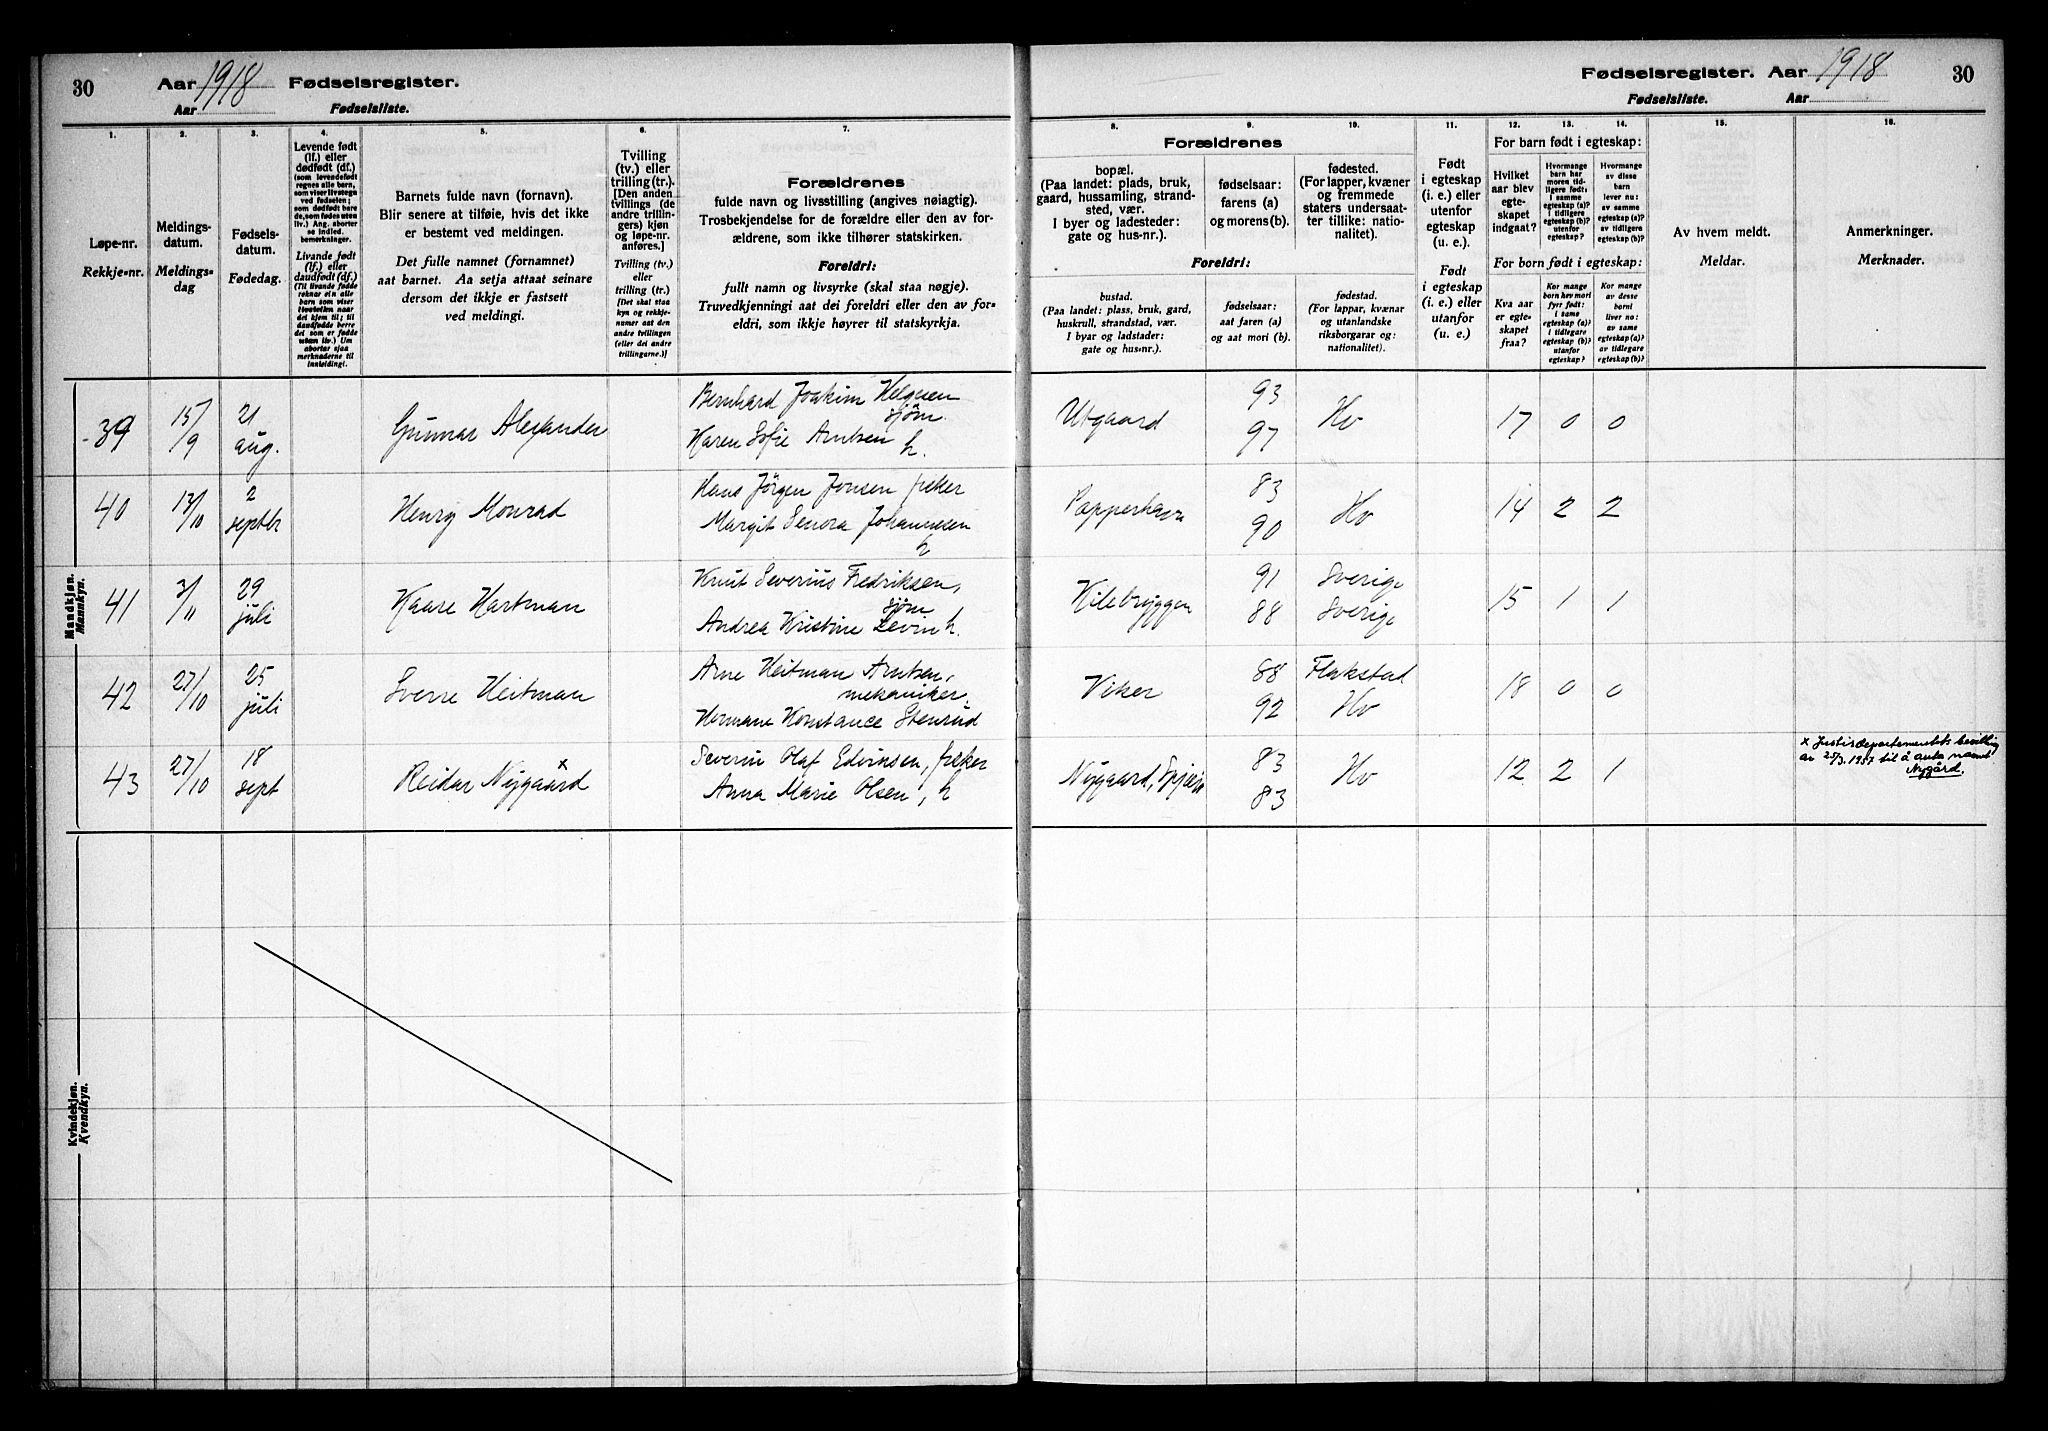 30
Aar 1918 Fødselsregister.
Aar Fødselsliste.
Fødselsregister. Aar 1918
Fødselsliste. Aar
30
1. 2. 3. 4. 5. 6. 7.
Løpe-nr.
Rekkje-nr.
Meldings-
datum.
Meldings-
dag
Fødsels-
datum.
Fødedag.
Levende født
(lf.) eller
dødfødt (df.)
(som levendefødt
regnes alle barn,
som viser livstegn
ved fødselen;
som dødfødt bare
de, som fødes uten
liv.) Ang. aborter
se indled.
bemerkninger.
Livande født
(lf.) eller
daudfødt (df.)
(Til livande fødde
reknar ein alle
born som viser
livsteikn naar
dei kjem til; til
daudfødde berre
dei som er fødde
utan liv.) Um
abortar sjaa
merknaderne til
innleidingi.
Barnets fulde navn (fornavn).
Blir senere at tilføie, hvis det ikke
er bestemt ved meldingen.
Det fulle namnet (fornamnet)
aat barnet. Aa setja attaat seinare
dersom det ikkje er fastsett
ved meldingi.
Tvilling
(tv.) eller
trilling (tr.).
[Den anden
tvillings (de
andre trillin-
gers) kjøn
og løpe-nr.
anføres.]
Tvilling (tv.)
eller
trilling (tr.)
[Det skal staa
kyn og rekkje-
numer aat den
andre tvillingen
(eller dei andre
trillingarne.)]
Forældrenes
fulde navn og livsstilling (angives nøiagtig).
Trosbekjendelse for de forældre eller den av for-
ældrene, som ikke tilhører statskirken.
Foreldri:
fullt namn og livsyrke (skal staa nøgje).
Truvedkjenningi aat dei foreldri eller den av for-
eldri, som ikkje høyrer til statskyrkja.
8. 9. 10. 11. 12. 13. 14. 15. 16.
Forældrenes
bopæl.
(Paa landet: plads, bruk,
gaard, hussamling, strand-
sted, vær.
I byer og ladesteder:
gate og hus-nr.).
fødselsaar:
farens (a)
og morens (b).
fødested.
(For lapper, kvæner
og fremmede
staters undersaat-
ter tillike: natio-
nalitet).
Foreldri:
bustad.
(Paa landet: plass, bruk, gard,
huskrull, strandstad, vær.
I byar og ladstader:
gate og hus-nr.).
fødselsaar:
aat faren (a)
og aat mori (b).
fødestad.
(For lappar, kvænar
og utanlandske
riksborgarar og:
nationalitet).
Født
i egteskap
(i. e.) eller
utenfor
egteskap
(u. e.).
Født
i egteskap
(i. e.) eller
utanfor
(u. e.).
For barn født i egteskap:
Hvilket
aar blev
egte-
skapet
indgaat?
Hvormange
barn har
moren tid-
ligere født:
i samme
egteskap (a)?
i tidligere
egteskap (b)?
utenfor
egteskap?
Hvormange
av disse
barn
lever nu:
av samme
egteskap (a)?
av tidligere
egteskap (b)?
For born født i egteskap:
Kva aar
er egte-
skapet
fraa?
Kor mange
born hev mori
fyrr født:
i same
egteskap (a)?
i tidlegare
egteskap (b)?
utanfor
egteskap?
Kor mange
av desse
borni
liver no:
av same
egteskap (a)?
av tidlegare
egteskap (b)?
Av hvem meldt.
Meldar.
Anmerkninger.
Merknader.
Mandkjøn.
Mannkyn.
39 15/9 21 aug. Gunnar Alexander Bernhard Joakim Helgesen sjøm. Karen Sofie Arntsen h. Utgaard 93 97 Hv 17 0 0
40 13/10 2 septbr Henry Monrad Hans Jörgen Jonsen fisker Margit Senora Johannesen h Papperhavn 83 90 Hv 14 2 2
41 3/11 29 juli Kaare Hartman Knut Severius Fredriksen, sjøm Andrea Kristine Levin h. Kilebryggen 91 88 Sverige Sverige 15 1 1
42 27/10 25 juli Sverre Heitman Arne Heitman Arntsen, mekaniker, Hermane Konstance Stenrud Viker 88 92 Flakstad Hv 18 0 0
43 27/10 18 sept Reidar Nygaard x Severin Olaf Edvinsen, fisker Anna Marie Olsen, h Nygaard, 83 83 Hv 12 2 1
x Justisdepartementets bevilling
av 25/3.1957 til å anta navnet
Nygård.
Kvindekjøn.
Kvendkyn.